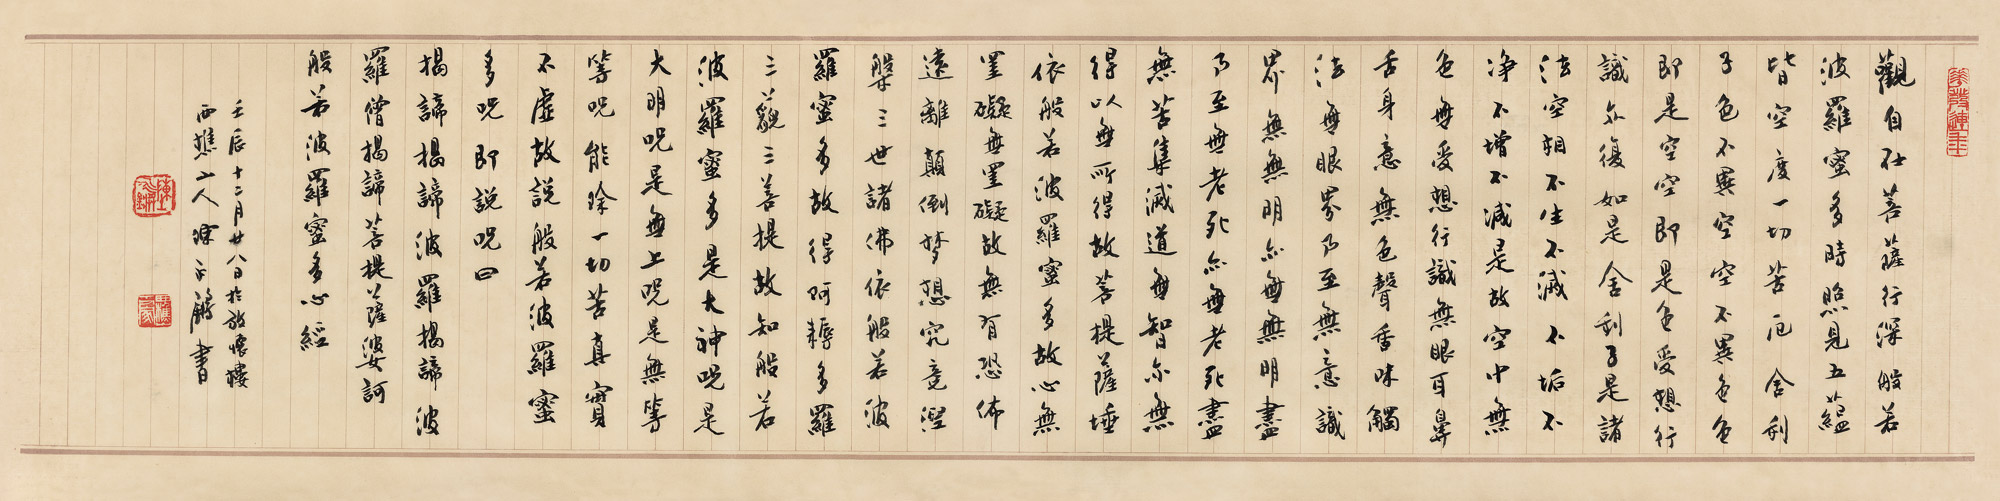 觀自在菩薩行深般若
波羅蜜多時照見五蘊
皆空度一切苦厄舍利
子色不異空空不異色色
即是空空即是色受想行
識亦復如是舍利子是諸
法空相不生不滅不垢不
净不增不減是故空中無
色無受想行識無眼耳鼻
舌身意無色聲香味觸
法無眼界乃至無意識
界無無明亦無無明盡
乃至無老死亦無老死盡
無苦集滅道無智亦無
得以無所得故菩提薩埵
依般若波羅蜜多故心無
罣礙無罣礙故無有恐怖
遠離顛倒夢想究竟涅
槃三世諸佛依般若波
羅蜜多故得阿耨多羅
三藐三菩提故知般若
波羅蜜多是大神咒是
大明咒是無上咒是無等
等咒能除一切苦真實
不虛故説般若波羅蜜
多咒即説咒曰
揭諦揭諦波羅揭諦波
羅僧揭諦菩提薩婆訶
般若波羅蜜多心經
壬辰十二月廿八日於放懷樓
西樵山人陳永鏘書